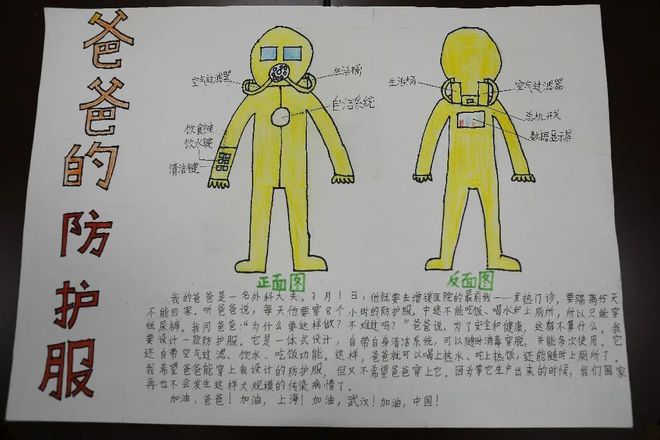 爸爸的防护服
空气过滤器
生活桶
自洁系统
饮食键
饮水键
清洁键
正面图
生活桶
空气过滤器
总机开关
数据显示屏
反面图
我的爸爸是一名外科大夫。3月1日，他就要去增援医院的最前线——发热门诊，要隔离45天
不能回家。听爸爸说，每天他要穿8个小时的防护服。中途不能吃饭、喝水和上厕所，所以只能穿
纸尿裤。我问爸爸：“为什么要这样做？不难过吗？”爸爸说，为了安全和健康，这都不算什么。我
要设计一款防护服。它是一体式设计，自带自身清洁系统，可以随时消毒穿脱，并能多次使用。它
还自带空气过滤、饮水、吃饭功能。这样，爸爸就可以喝上热水、吃上热饭，还能随时上厕所了。
我希望爸爸能穿上我设计的防护服，但又不希望爸爸穿上它。因为等它生产出来的时候，我们国家
再也不会发生这样大规模的传染病情了。
加油，爸爸！加油，上海！加油，武汉！加油，中国！